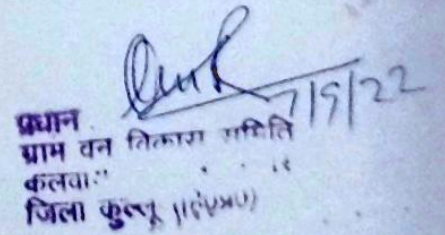 7/9/22
प्रधान
ग्राम वन विकास समिति
जिला कुल्लू (हि०प्र०)